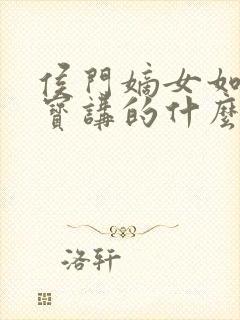 侯門嫡女如
寶講的什麼
洛轩